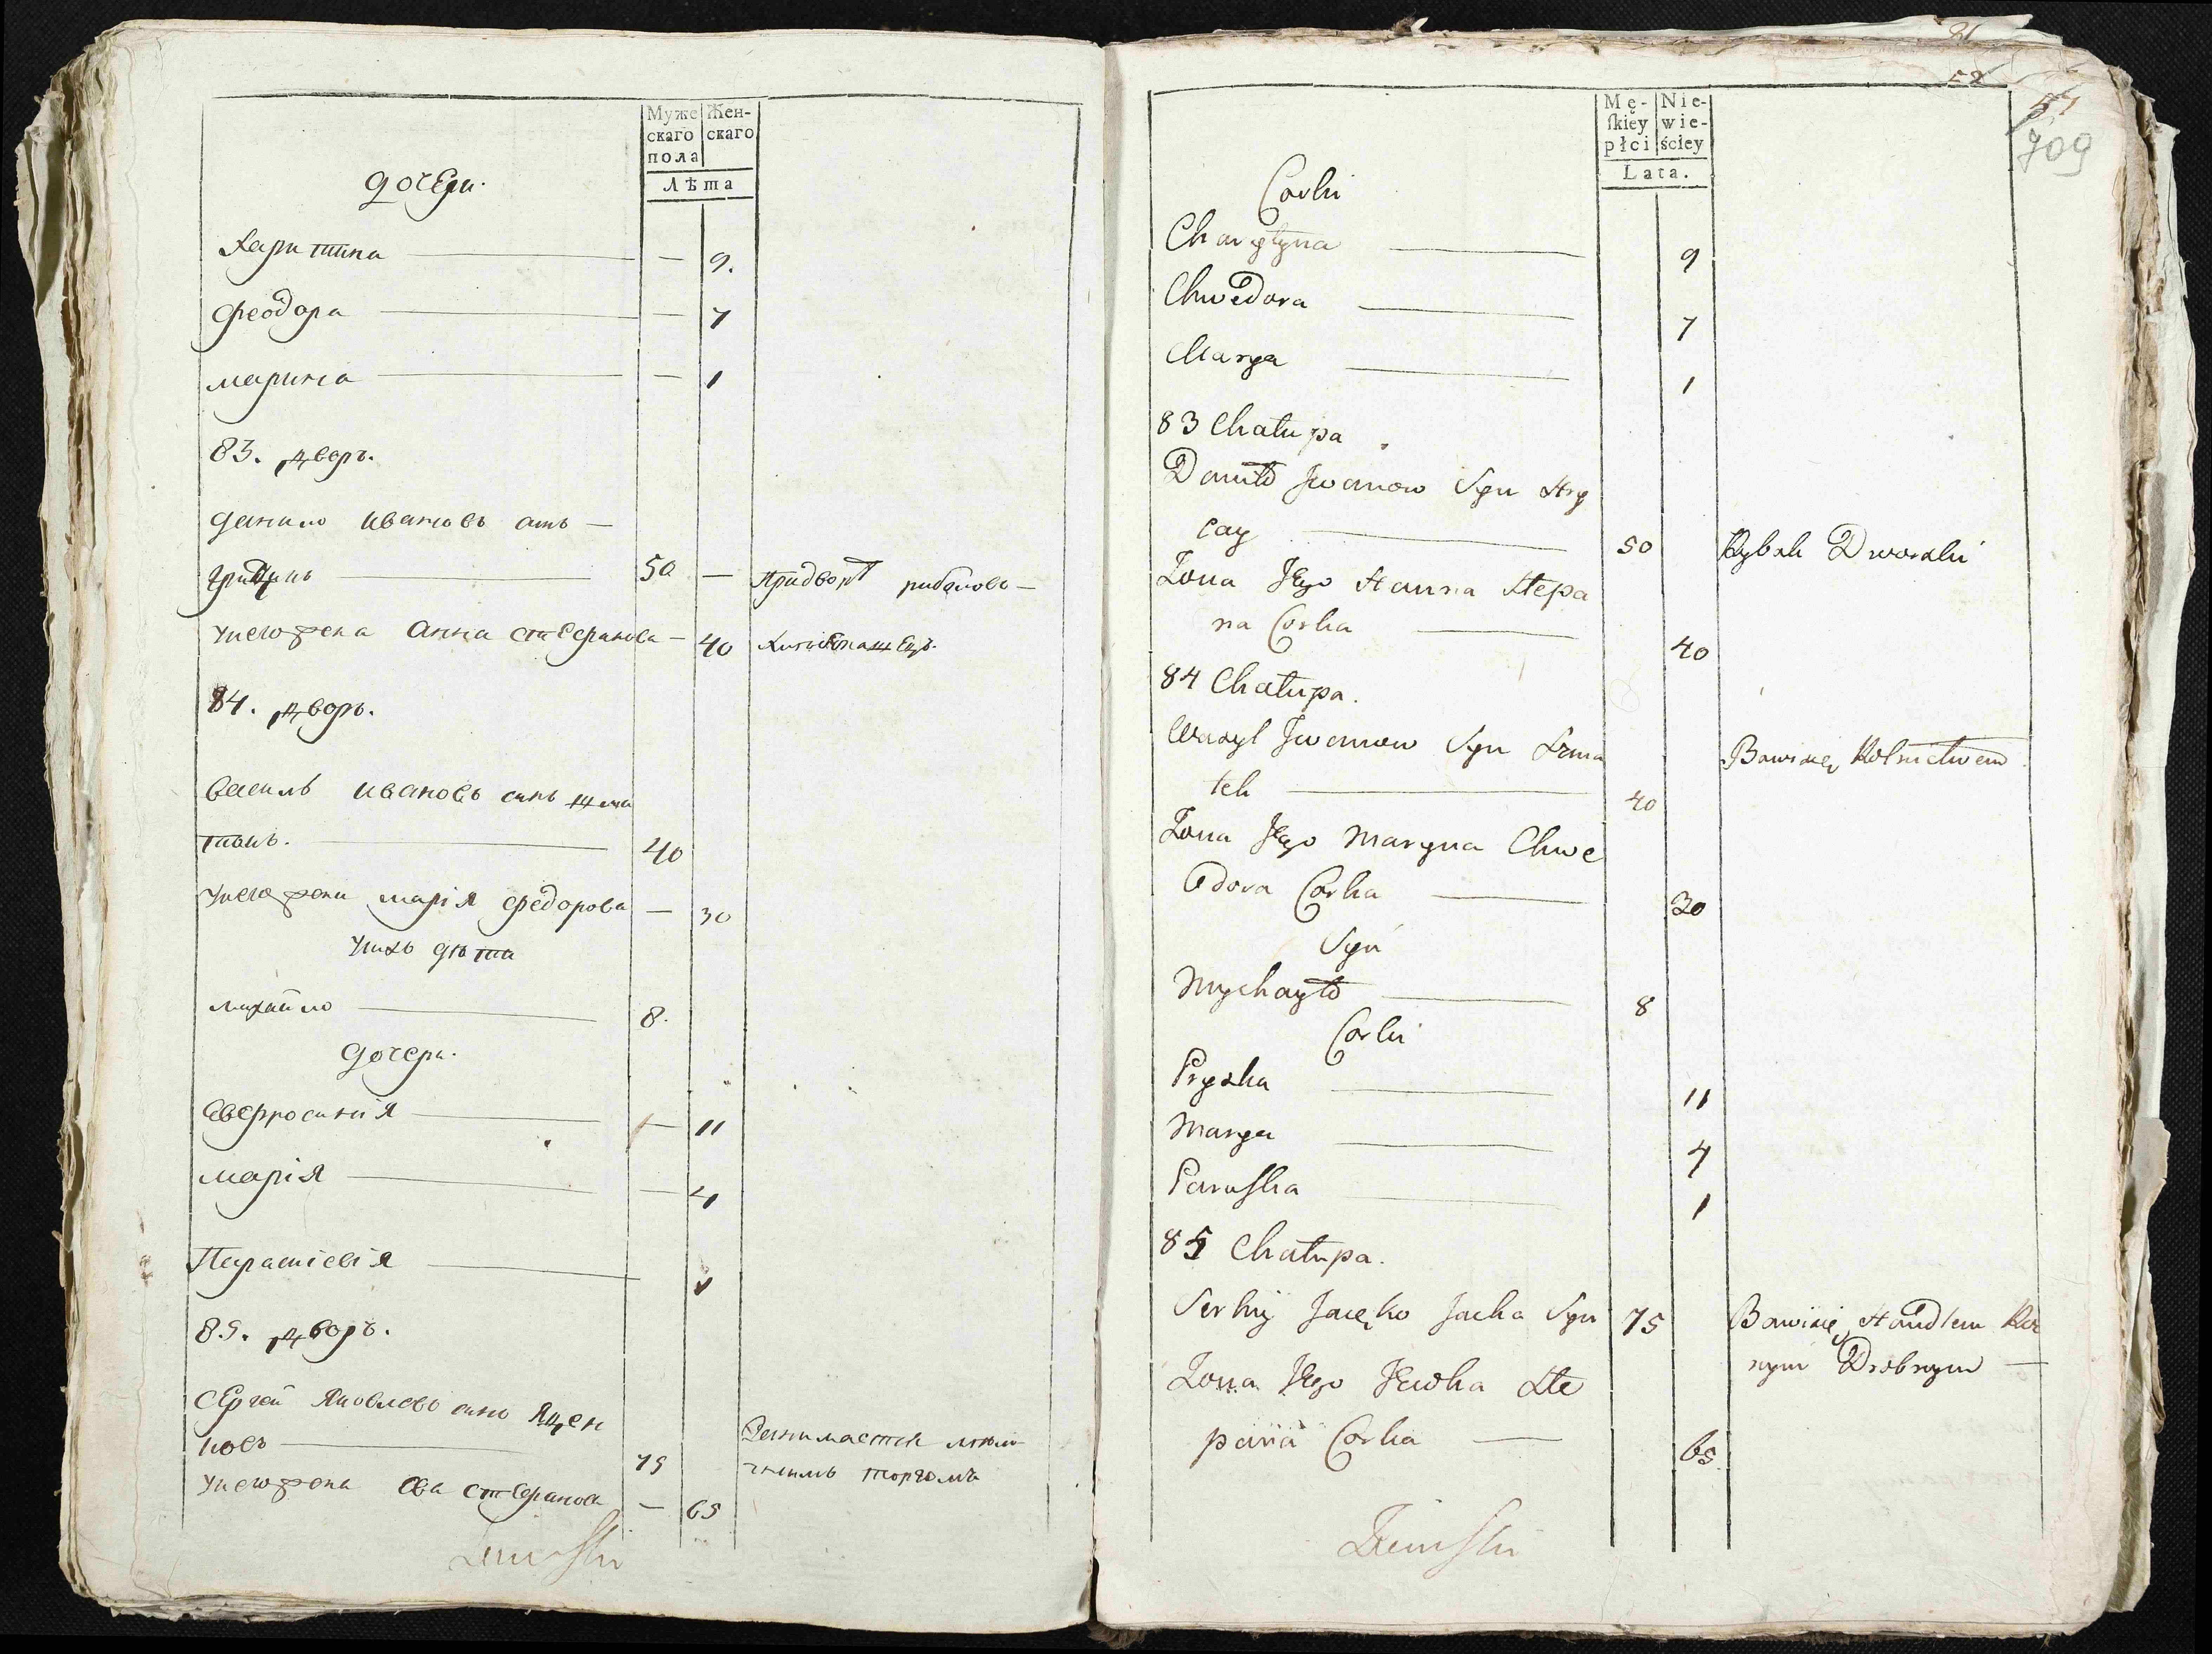 Муже
скаго
пола
Жен-
скаго
Лѣта
дочери.
Харитина — 9.
Феодора — 7
марина — 1
83. дворъ.
данило ивановъ сынъ
грицынъ 50 — придворъ рибаловъ
у него жена анна стефанова — 40
84. дворъ.
василь ивановъ сынъ
40
у него жена марія федорова — 30
у нихъ дѣти
михайло 8.
дочери.
евфросинія — 11
марія — 4
Параскевія 1
85. дворъ.
Сергей Яковлевъ сынъ Яцен
ковъ 75 Занимается
торгомъ
у него жена ева стефанова — 65
81
52
57
709
Mę-
skiey
płci
Nie-
wie-
ściey
Lata.
Corki
Charytyna 9
Chwedora 7
Marya 1
83 Chałupa
Daniło Jwanow Syn Hry
cay 50 Rybak Dworski
Zona Jego Hanna Stepa
na Corka 40
84 Chałupa.
Wasyl Jwanow Syn Szma
tek 40 Bawi się Rolnictwem
Zona Jego Maryna Chwe
dora Corka 30
Syn
Mychayło 8
Corki
Pryska 11
Marya 4
Paraska 1
85 Chałupa.
Serhiy Jacęko Jacka Syn 75 Bawi się Handlem Roz
nym Drobnym —
Zona Jego Jewka Ste
pana Corka 65